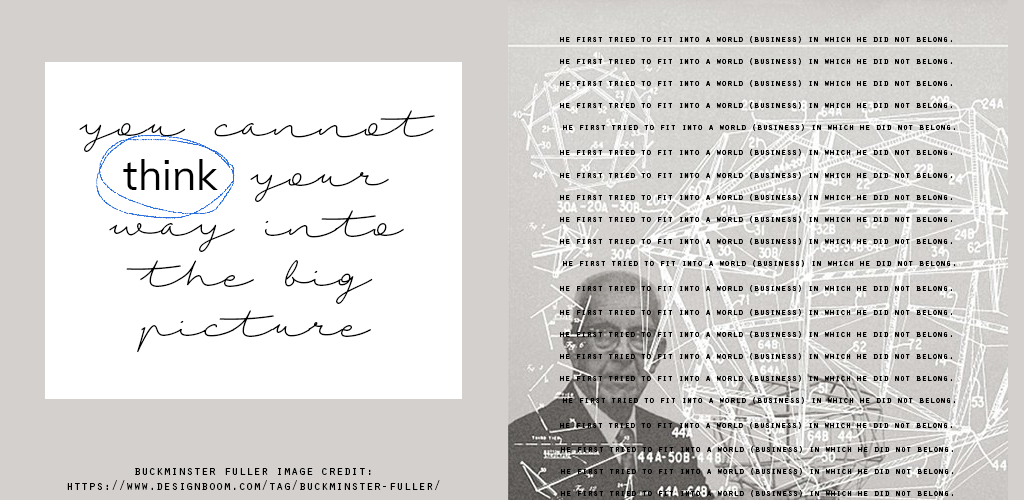 you cannot
think your
way into
the big
picture
BUCKMINSTER FULLER IMAGE CREDIT:
HTTPS://WWW.DESIGNBOOM.COM/TAG/BUCKMINSTER-FULLER/
HE FIRST TRIED TO FIT INTO A WORLD (BUSINESS) IN WHICH HE DID NOT BELONG.
HE FIRST TRIED TO FIT INTO A WORLD (BUSINESS) IN WHICH HE DID NOT BELONG.
HE FIRST TRIED TO FIT INTO A WORLD (BUSINESS) IN WHICH HE DID NOT BELONG.
HE FIRST TRIED TO FIT INTO A WORLD (BUSINESS) IN WHICH HE DID NOT BELONG.
24A
HE FIRST TRIED TO FIT INTO A WORLD (BUSINESS) IN WHICH HE DID NOT BELONG.
HE FIRST TRIED TO FIT INTO A WORLD (BUSINESS) IN WHICH HE DID NOT BELONG.
HE FIRST TRIED TO FIT INTO A WORLD (BUSINESS) IN WHICH HE DID NOT BELONG.
HE FIRST TRIED TO FIT INTO A WORLD (BUSINESS) IN WHICH HE DID NOT BELONG.
21A
HE FIRST TRIED TO FIT INTO A WORLD (BUSINESS) IN WHICH HE DID NOT BELONG.
31
32B
24B
HE FIRST TRIED TO FIT INTO A WORLD (BUSINESS) IN WHICH HE DID NOT BELONG.
62
HE FIRST TRIED TO FIT INTO A WORLD (BUSINESS) IN WHICH HE DID NOT BELONG.
HE FIRST TRIED TO FIT INTO A WORLD (BUSINESS) IN WHICH HE DID NOT BELONG.
HE FIRST TRIED TO FIT INTO A WORLD (BUSINESS) IN WHICH HE DID NOT BELONG.
HE FIRST TRIED TO FIT INTO A WORLD (BUSINESS) IN WHICH HE DID NOT BELONG.
64B
52
72
HE FIRST TRIED TO FIT INTO A WORLD (BUSINESS) IN WHICH HE DID NOT BELONG.
HE FIRST TRIED TO FIT INTO A WORLD (BUSINESS) IN WHICH HE DID NOT BELONG.
HE FIRST TRIED TO FIT INTO A WORLD (BUSINESS) IN WHICH HE DID NOT BELONG.
53
HE FIRST TRIED TO FIT INTO A WORLD (BUSINESS) IN WHICH HE DID NOT BELONG.
44A
64B
HE FIRST TRIED TO FIT INTO A WORLD (BUSINESS) IN WHICH HE DID NOT BELONG.
44A-50B-44B
44
HE FIRST TRIED TO FIT INTO A WORLD (BUSINESS) IN WHICH HE DID NOT BELONG.
HE FIRST TRIED TO FIT INTO A WORLD (BUSINESS) IN WHICH HE DID NOT BELONG.